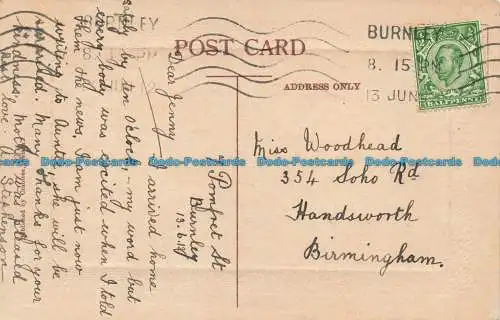 POST CARD
ADDRESS ONLY
BURNLEY
8. 15 PM
13 JUN
HALFPENNY
Pomfret St
Burnley
13.6.
Dear Jenny
I arrived home
safely by ten o'clock, my word but
every body was excited when I told
them the news, I am just now
writing to Aunty, she will be
Many thanks for your
kindness, Mother
love.
Stephenson
Miss Woodhead
354 Soho Rd
Handsworth
Birmingham.
Dodo-Postcards Dodo-Postcards Dodo-Postcards Dodo-Postcards